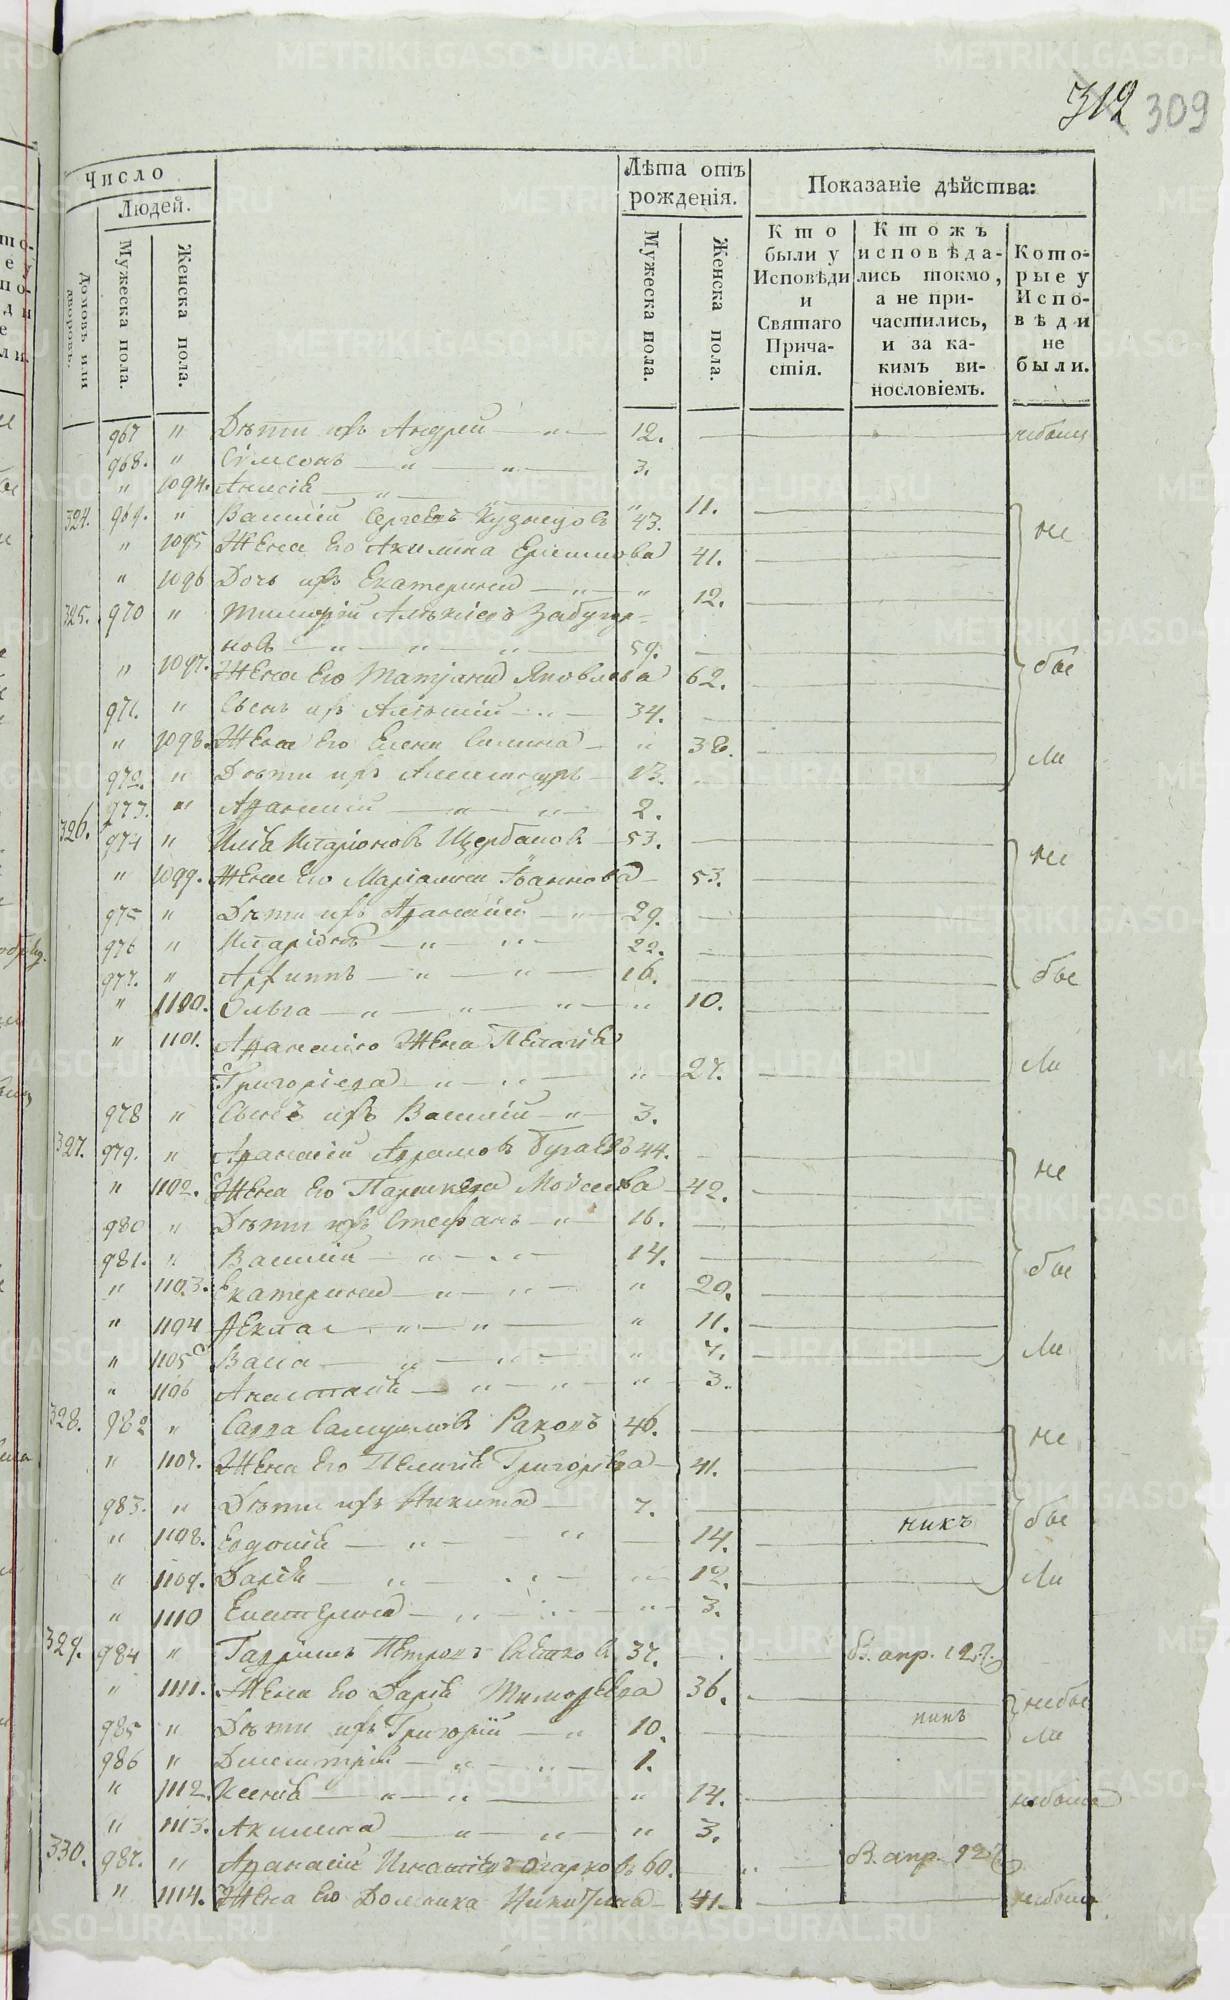 312 309
Число
Людей.
Домовъ или дворовъ.
Мужеска пола.
Женска пола.
Лѣта отъ
рожденія.
Мужеска пола.
Женска пола.
Показаніе дѣйства:
Кто
были у
Исповѣди
и
Святаго
Прича-
стія.
Ктожъ
исповѣда-
лись токмо,
а не при-
частились,
и за ка-
кимъ ви-
нословіемъ.
Кото-
рые у
Испо-
вѣди
не
были.
967 " Дѣти ихъ Андрей — " — 12.
968. " Сѵмеонъ — " — " — 3.
" 1094. — " —
324. 969. " Василий Сергеевъ Кузнецовъ " 43. 11. не
" 1095 Жена Его Акилина 41.
" 1096 Дочь ихъ Екатерина — " — " 12.
325. 970 " Тимофей Алексіевъ Забугор-
новъ — " — " — " — 59.
" 1097. Жена Его Татіана Яковлева 62. бы
971. " Сынъ ихъ Алексий — " — 34.
" 1098. Жена Его Елена — " 38. ли
972. " Дѣти ихъ Александръ — 13.
973. " Афанасий — " — " — 2.
326. 974 " Илія Иларіоновъ Щербаковъ — 53. не
" 1099. Жена Его Маріамна Іоаннова — 53.
975 " Дѣти ихъ Афанасий — " — 29.
976 " Иларіонъ — " — " — 22.
977. " Архиппъ — " — " — 16. бы
" 1100. Ольга — " — " — " — " 10.
" 1101. Афанасіа Жена Пелагія
Григоріева — " — " — " 27. ли
978 " Сынъ ихъ Василий — " — 3.
327. 979. " Афанасий Абрамовъ Бугаевъ 44. не
" 1102. Жена Его Параскева Моисеева — 42.
980 " Дѣти ихъ Стефанъ — " — 16.
981. " Василий — " — " — 14. бы
" 1103. Екатерина — " — " — " 20.
" 1104 Фекла — " — " — " 11.
" 1105 Васса — " — " — " 7. ли
" 1106 Анастасія — " — " — " 3.
328. 982 " Савва Самуиловъ 46. не
" 1107. Жена Его Пелагія Григоріева — 41.
983. " Дѣти ихъ Никита — 7.
никъ бы
" 1108. Евдокія — " — " — 14.
" 1109. Дарія — " — " — " 12. ли
" 1110 Екатерина — " — " — " 3.
329. 984 " Гавриилъ Петровъ 37. В. апр. 12
" 1111. Жена Его Дарія Тимофеева 36. небы
985 " Дѣти ихъ Григорій — " 10. никъ ли
986 " Димитрій — " — " — 1.
" 1112. Ксенія — " — " — " 14.
" 1113. Акилина — " — " — " 3.
330. 987. " Афанасій Игнатіевъ Огарковъ 60. В. апр. 12
" 1114. Жена Его Домника Никитина — 41.